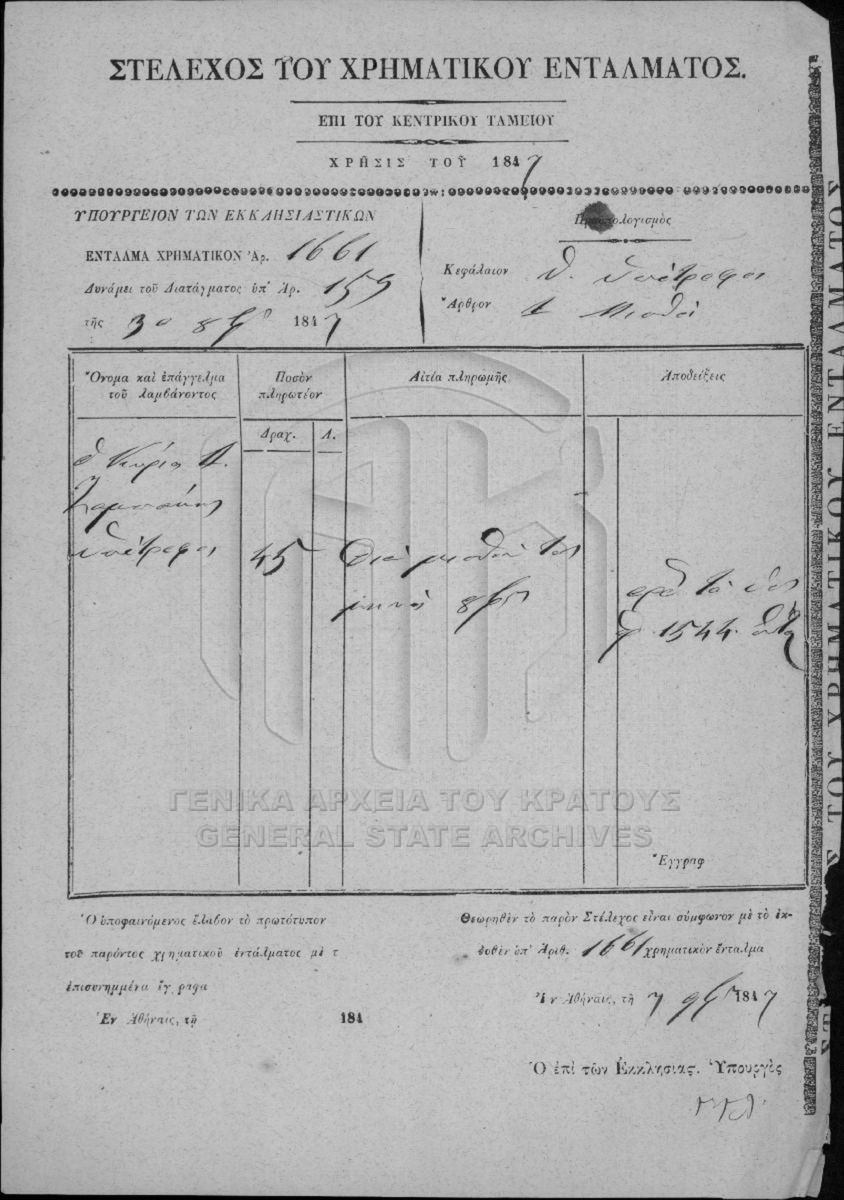 ΣΤΕΛΕΧΟΣ ΤΟΥ ΧΡΗΜΑΤΙΚΟΥ ΕΝΤΑΛΜΑΤΟΣ.
ΕΠΙ ΤΟΥ ΚΕΝΤΡΙΚΟΥ ΤΑΜΕΙΟΥ
ΧΡΗΣΙΣ ΤΟΥ 1847
ΥΠΟΥΡΓΕΙΟΝ ΤΩΝ ΕΚΚΛΗΣΙΑΣΤΙΚΩΝ
ΕΝΤΑΛΜΑ ΧΡΗΜΑΤΙΚΟΝ Ἀρ. 1661
Δυνάμει τοῦ Διατάγματος ὑπ' Ἀρ. 159
τῆς 30 8βρ 1847
Προϋπολογισμὸς
Κεφάλαιον Θ. Υπότροφοι
Ἄρθρον Α Μισθοί
Ὄνομα καὶ ἐπάγγελμα τοῦ λαμβάνοντος
Ποσὸν πληρωτέον
Αἰτία πληρωμῆς
Ἀποδείξεις
Δραχ. Λ.
ὁ Κύριος Δ.
υπότροφος 45 Διά μισθόν του
μηνός 8βρίου
1544
ΓΕΝΙΚΑ ΑΡΧΕΙΑ ΤΟΥ ΚΡΑΤΟΥΣ
GENERAL STATE ARCHIVES
Ἔγγραφ
Ὁ ὑποφαινόμενος ἔλαβον τὸ πρωτότυπον
τοῦ παρόντος χρηματικοῦ ἐντάλματος μὲ τ
ἐπισυνημμένα ἔγγραφα
Ἐν Ἀθήναις, τῇ 184
Θεωρηθὲν τὸ παρὸν Στέλεχος εἶναι σύμφωνον μὲ τὸ ἐκ-
δοθὲν ὑπ' Ἀριθ. 1661 χρηματικὸν ἔνταλμα
Ἐν Ἀθήναις, τῇ 7 9βρ 1847
Ὁ ἐπὶ τῶν Ἐκκλησιας. Ὑπουργὸς
ΤΟΥ ΧΡΗΜΑΤΙΚΟΥ ΕΝΤΑΛΜΑΤΟΣ